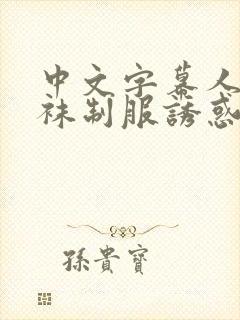 中文字幕人
袜制服誘惑
孫貴寶